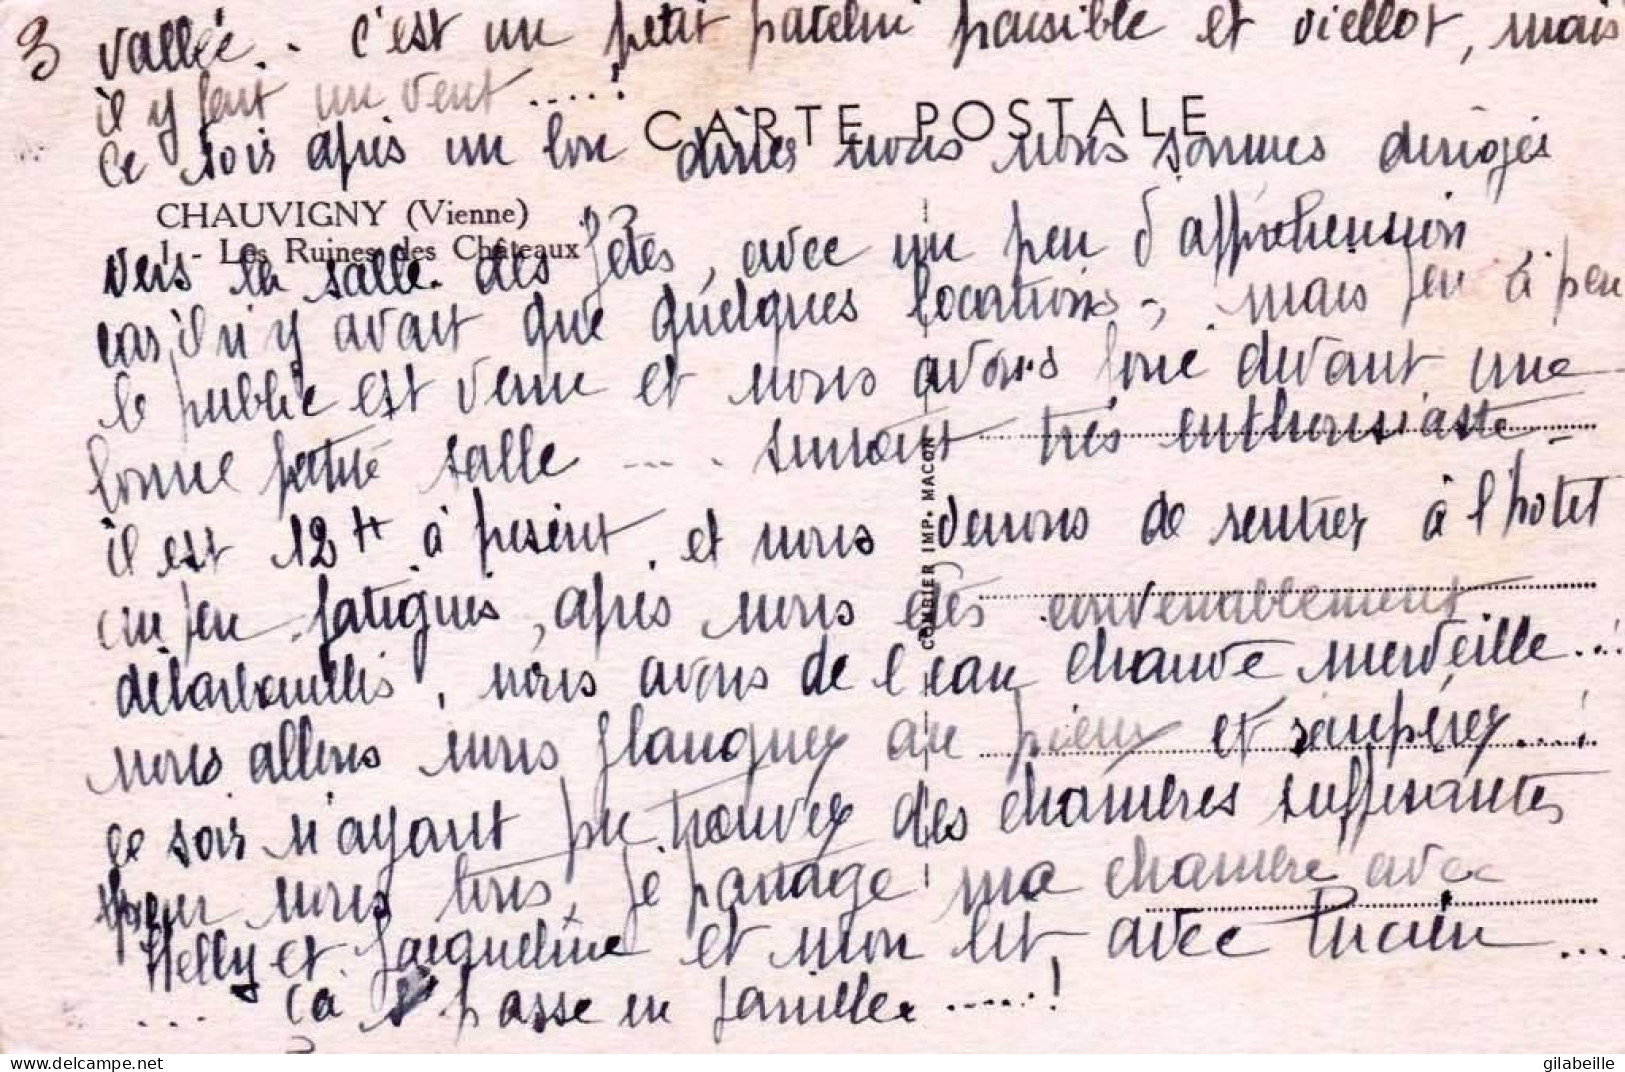 3 vallée.. c'est un petit patelin paisible et viellot, mais
il y fait un vent .....!
CARTE POSTALE
ce soir après un bon dîner nous nous sommes dirigés
CHAUVIGNY (Vienne)
1. - Les Ruines des Châteaux
vers la salle des fêtes, avec un peu d'appréhension
car il n'y avait que quelques locations, mais peu à peu
le public est venu et nous avons joué devant une
bonne petite salle .... surtout très enthousiaste -
il est 12 H à présent, et nous venons de rentrer à l'hotel
un peu fatigués, après nous êtes convenablement
débarbouillés, nous avons de l'eau chaude merveille...!
nous allons nous flanquer au pieux et récupérer...!
ce soir n'ayant pu trouver des chambres suffisantes
pour nous tous, je partage ma chambre avec
Helly et Jacqueline et mon lit, avec Lucien ....
.... ça s' passe en famille .....!
COMBIER IMP. MACON
gilabeille